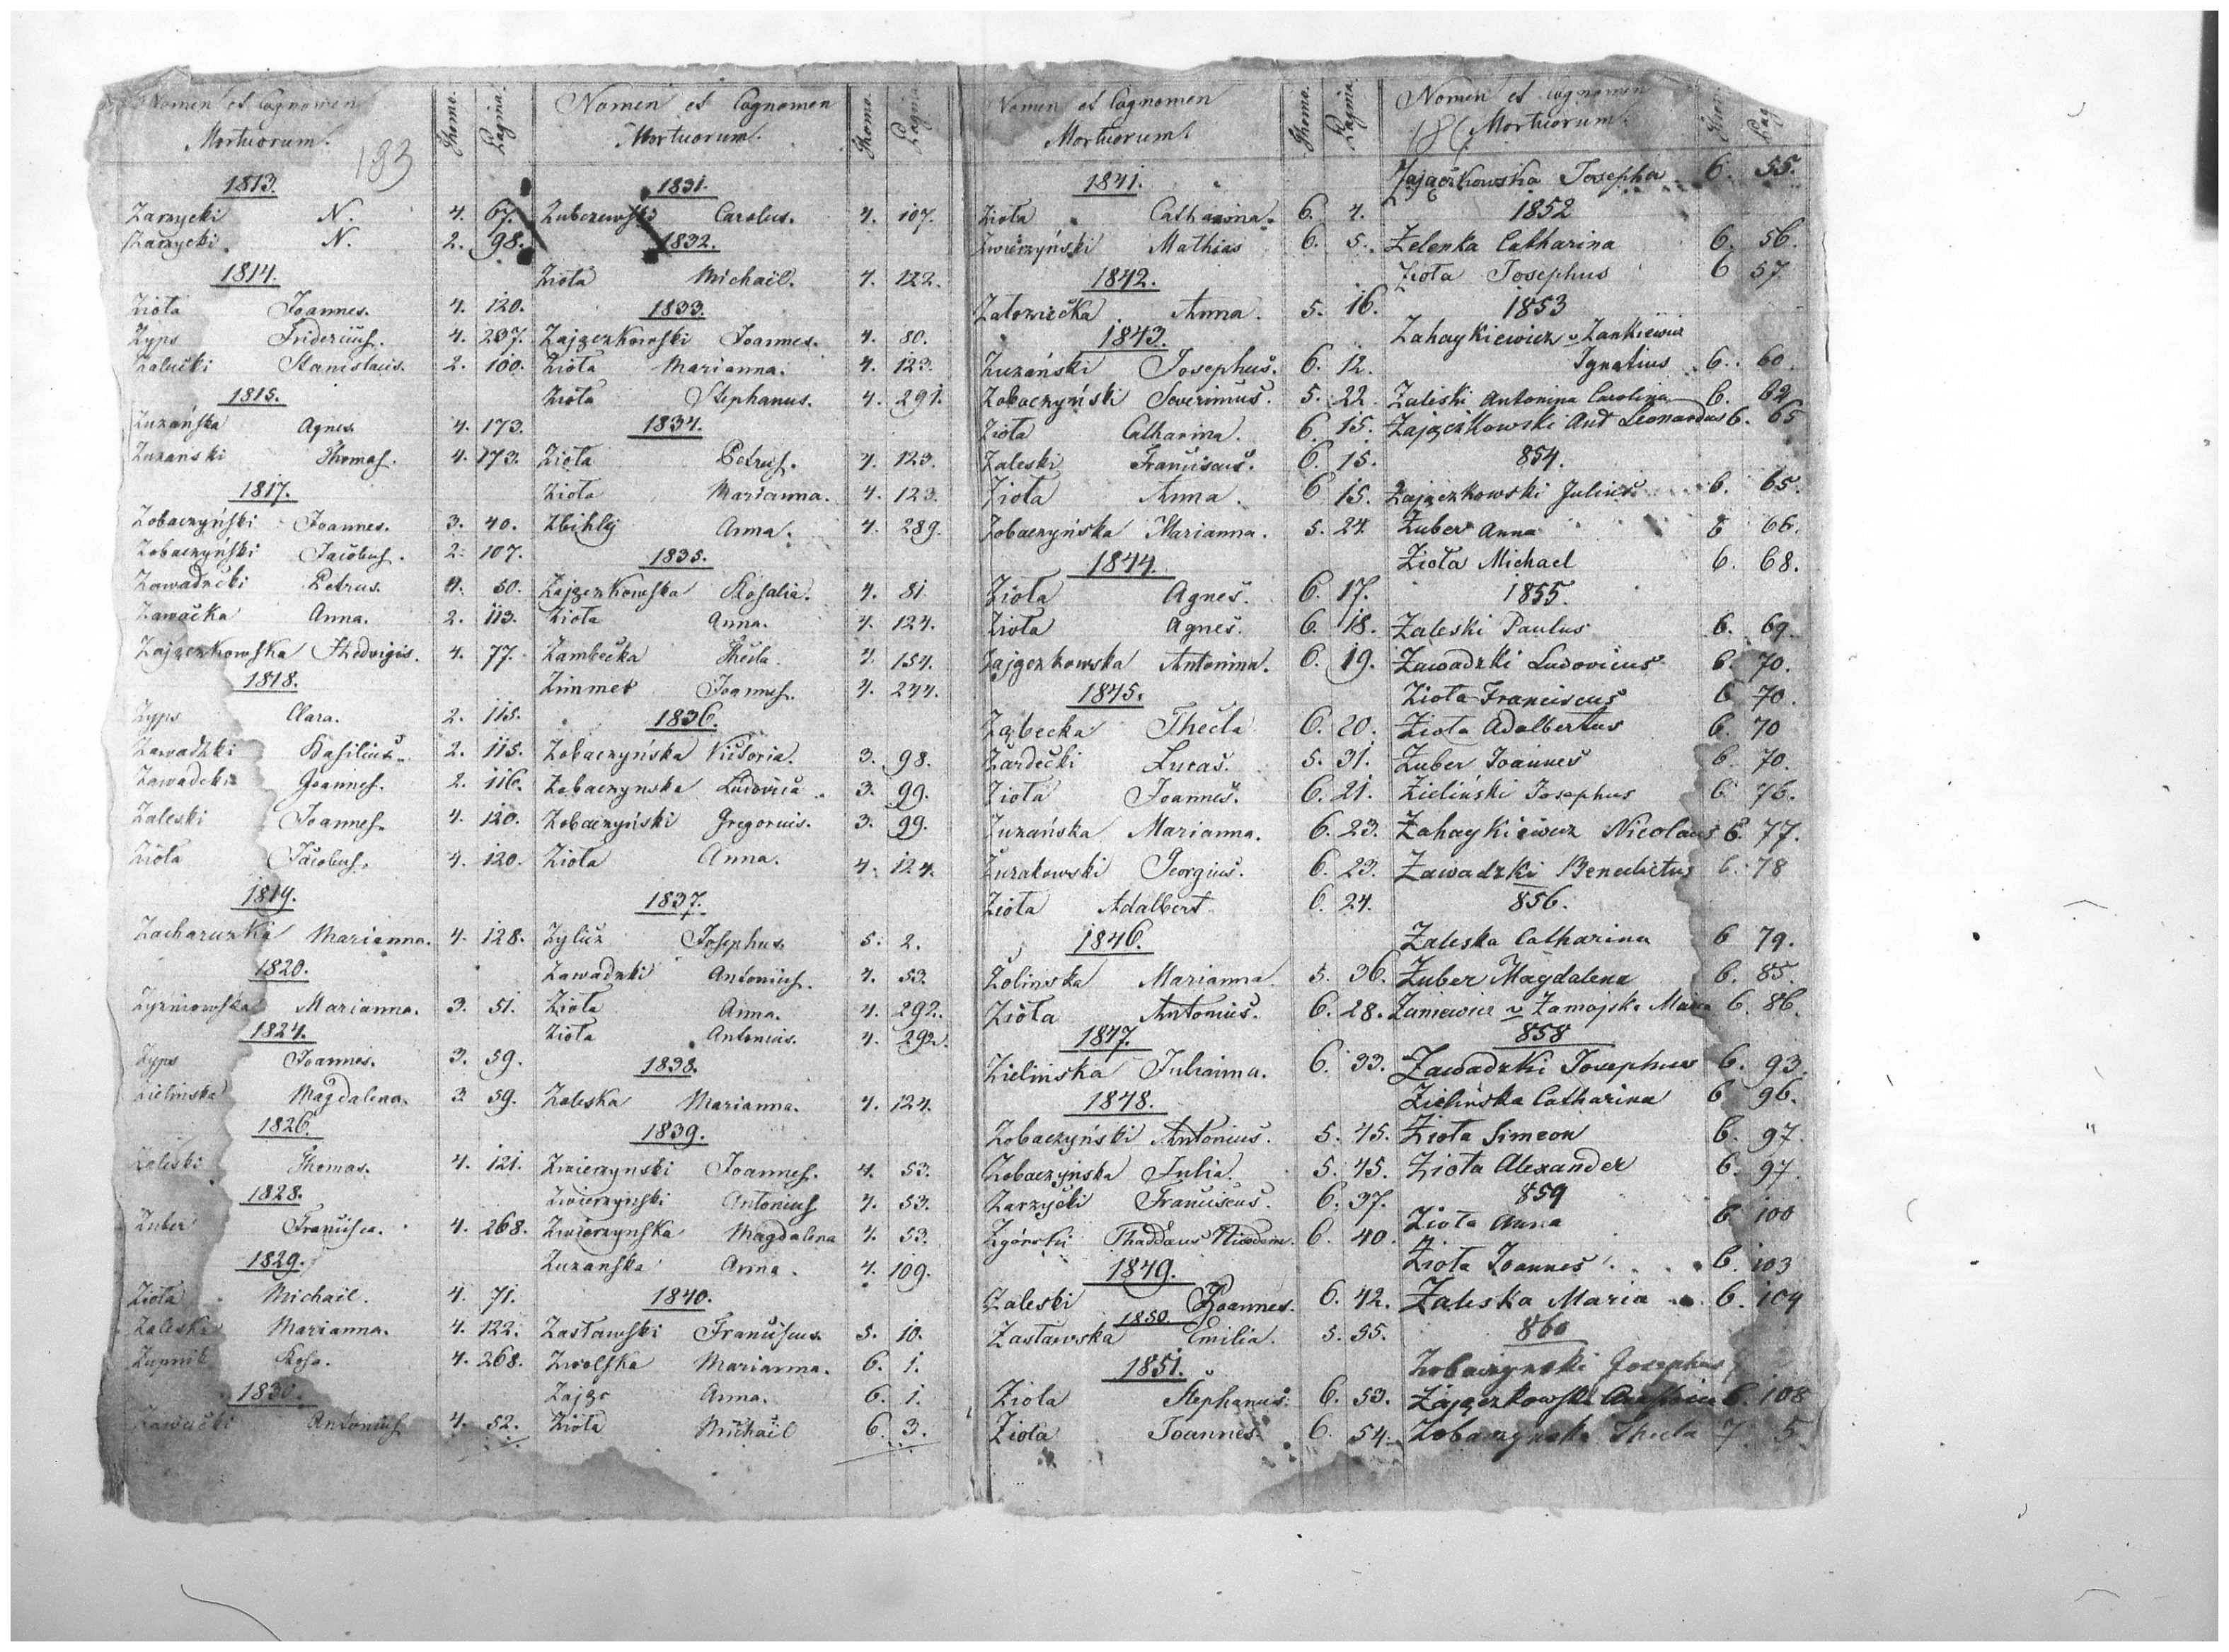 Nomen et Cognomen Mortuorum. Thomo. Pagina.
183
1813.
Zarzycki N. 4. 67.
Zarzycki N. 2. 98.
1814.
Ziota Joannes. 4. 120.
Zyps 4. 237.
Zalucki Stanislaus. 2. 100.
1815.
Zuzańska Agnes 4. 173.
Zuzanski Thomas. 4. 173.
1817.
Zobaczyński Joannes. 3. 40.
Zobaczyński Jacobus. 2. 107.
Zawadzcki Petrus. 4. 50.
Zawacka Anna. 2. 113.
Zajączkowska Hedvigis. 4. 77.
1818.
Zyps Clara. 2. 115.
Zawadzki Basilius. 2. 115.
Zawadcki Joannes. 2. 116.
Zaleski Joannes. 4. 120.
Ziota Jacobus. 4. 120.
1819.
Marianna. 4. 128.
1820.
Marianna. 3. 51.
1824.
Zyps Joannes. 3. 59.
Zielinska Magdalena. 3 59.
1826.
Zaleski Thomas. 4. 121.
1828.
Zuber Francisca. 4. 268.
1829.
Ziota Michael. 4. 71.
Zaleska Marianna. 4. 122.
Zupnik Rosa. 4. 268.
1830.
Zawacki Antonius 4. 52.
Nomen et Cognomen Mortuorum. Thomo. Pagina.
1831.
Carolus. 4. 107.
1832.
Ziota Michail. 4. 122.
1833.
Zajączkowski Joannes. 4. 80.
Ziota Marianna. 4. 123.
Ziota Stephanus. 4. 291.
1834.
Ziota Petrus. 4. 123.
Ziota Marianna. 4. 123.
Zbihly Anna. 4. 289.
1835.
Zajączkowska Rosalia. 4. 81
Ziota Anna. 4. 124.
Zambecka Thecla. 4. 154.
Zimmer Joannes. 4. 244.
1836.
Zobaczyńska Victoria. 3. 98.
Zobaczynska Ludovica. 3. 99.
Zobaczyński Gregorius. 3. 99.
Ziota Anna. 4. 124.
1837.
Josephus. 5. 2.
Zawadzki Antonius. 4. 53.
Ziota Anna. 4. 292.
Ziota Antonius. 4. 292.
1838.
Zaleska Marianna. 4. 124.
1839.
Zwierzynski Joannes. 4. 53.
Zwierzynski Antonius 4. 53.
Zwierzynska Magdalena 4. 53.
Zuzanska Anna. 4. 109.
1840.
Zastawski Franciscus. 5. 10.
Zwolska Marianna. 6. 1.
Anna. 6. 1.
Ziota Michail 6. 3.
Nomen et Cognomen Mortuorum. Thomo. Pagina.
1841.
Ziota Catharina. 6. 4.
Zwierzyński Mathias 6. 5.
1842.
Anna. 5. 16.
1843.
Zuzański Josephus. 6. 12.
Zobaczyński Severinus. 5. 22.
Ziota Catharina. 6. 15.
Zaleski Franciscus. 6. 15.
Ziota Anna. 6 15.
Zobaczyńska Marianna. 5. 24.
1844.
Ziota Agnes. 6. 17.
Ziota Agnes. 6. 18.
Zajączkowska Antonina. 6. 19.
1845.
Ząbecka Thecla 6. 20.
Zardecki Lucas. 5. 31.
Ziota Joannes. 6. 21.
Zuzańska Marianna. 6. 23.
Żurakowski Georgius. 6. 23.
Ziota Adalbert 6. 24.
1846.
Zolinska Marianna. 5. 36.
Ziota Antonius. 6. 28.
1847.
Zielinska Julianna. 6. 33.
1848.
Zobaczyński Antonius. 5. 45.
Zobaczyńska Julia. 5. 45.
Zarzycki Franciscus. 6. 37.
Zgórski Thaddaus Nicodem. 6. 40.
1849.
Zaleski Joannes. 6. 42.
1850.
Zastawska Emilia. 5. 55.
1851.
Ziola Stephanus. 6. 53.
Ziola Joannes. 6. 54.
Nomen et Cognomen Mortuorum.
Zajączkowska Josepha 6. 55.
1852
Zelenka Catharina 6. 56.
Ziota Josephus 6 57
1853
Zahaykiewicz v Zankiewicz
Ignatius 6. 60.
Zaleski Antonina Carolina 6. 62
Zajączkowski Ant Leonardus 6. 65
854.
Zajączkowski Julius 6. 65.
Zuber Anna 6 66.
Ziota Michael 6. 68.
1855.
Zaleski Paulus 6. 69.
Zawadzki Ludovicus 6. 70.
Ziota Franciscus 6 70.
Ziota Adalbertus 6. 70
Zuber Joannes 6. 70.
Zieliński Josephus 6 76.
Zahaykiewicz Nicolaus 6. 77.
Zawadzki Benedictus 6. 78
856.
Zaleska Catharina 6 79.
Zuber Magdalena 6. 85.
Zaniewicz v Zamojska Maria 6. 86.
858
Zawadzki Josephus 6. 93.
Zielińska Catharina 6 96.
Ziota Simeon 6. 97.
Ziota Alexander 6. 97
859
Ziota Anna 6 100
Ziota Joannes 6. 103
Zaleska Maria 6. 104
860
Zobaczynski Josephus
Zajączkowska 6. 108
Zobaczynska Thecla 7 5